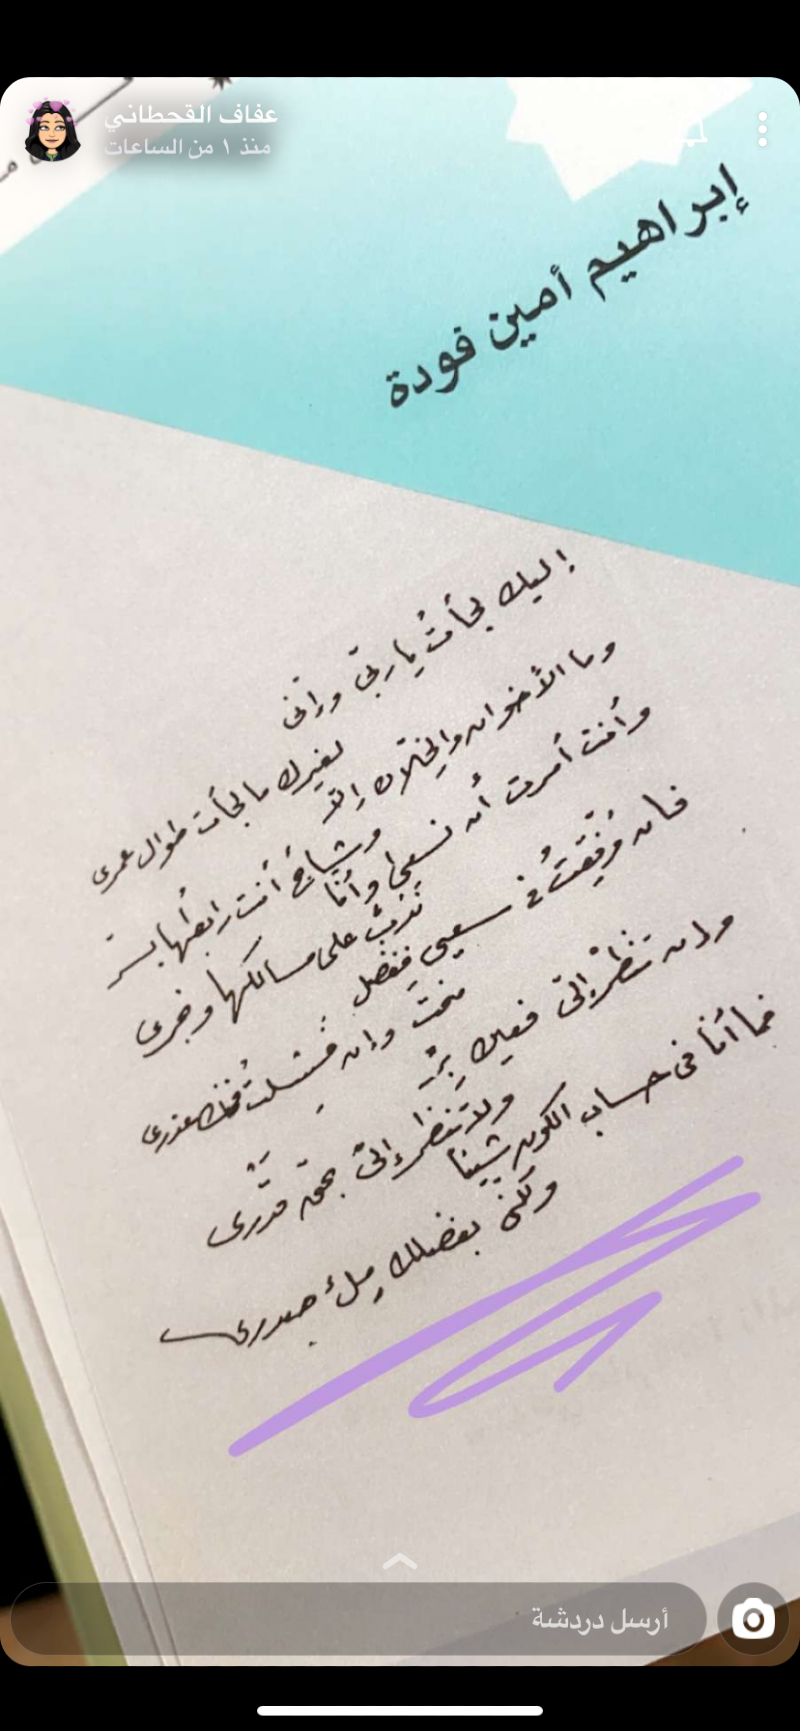 عفاف القحطاني
منذ ١ من الساعات
إبراهيم أمين فودة
إليك لجأتُ يا ربّي وإنّي
لغيرك ما لجأت طوال عمرى
وما الأخوان والخلّان إلّا
وشائج أنت رابعها بسرّ
وأنت أمرت أن نسعى وأنّا
ندبّ على مسالكها ونجرى
فإن وُفِّقتُ في سعيي ففضل
منحت وإن فشلت فمنك عذرى
وإن تنظرْ إليّ فعين برّ
ولا تنظر إليّ بحق قدرى
فما أنا في حساب الكون شيئاً
ولكنّي بفضلك ملءُ صدرى
أرسل دردشة